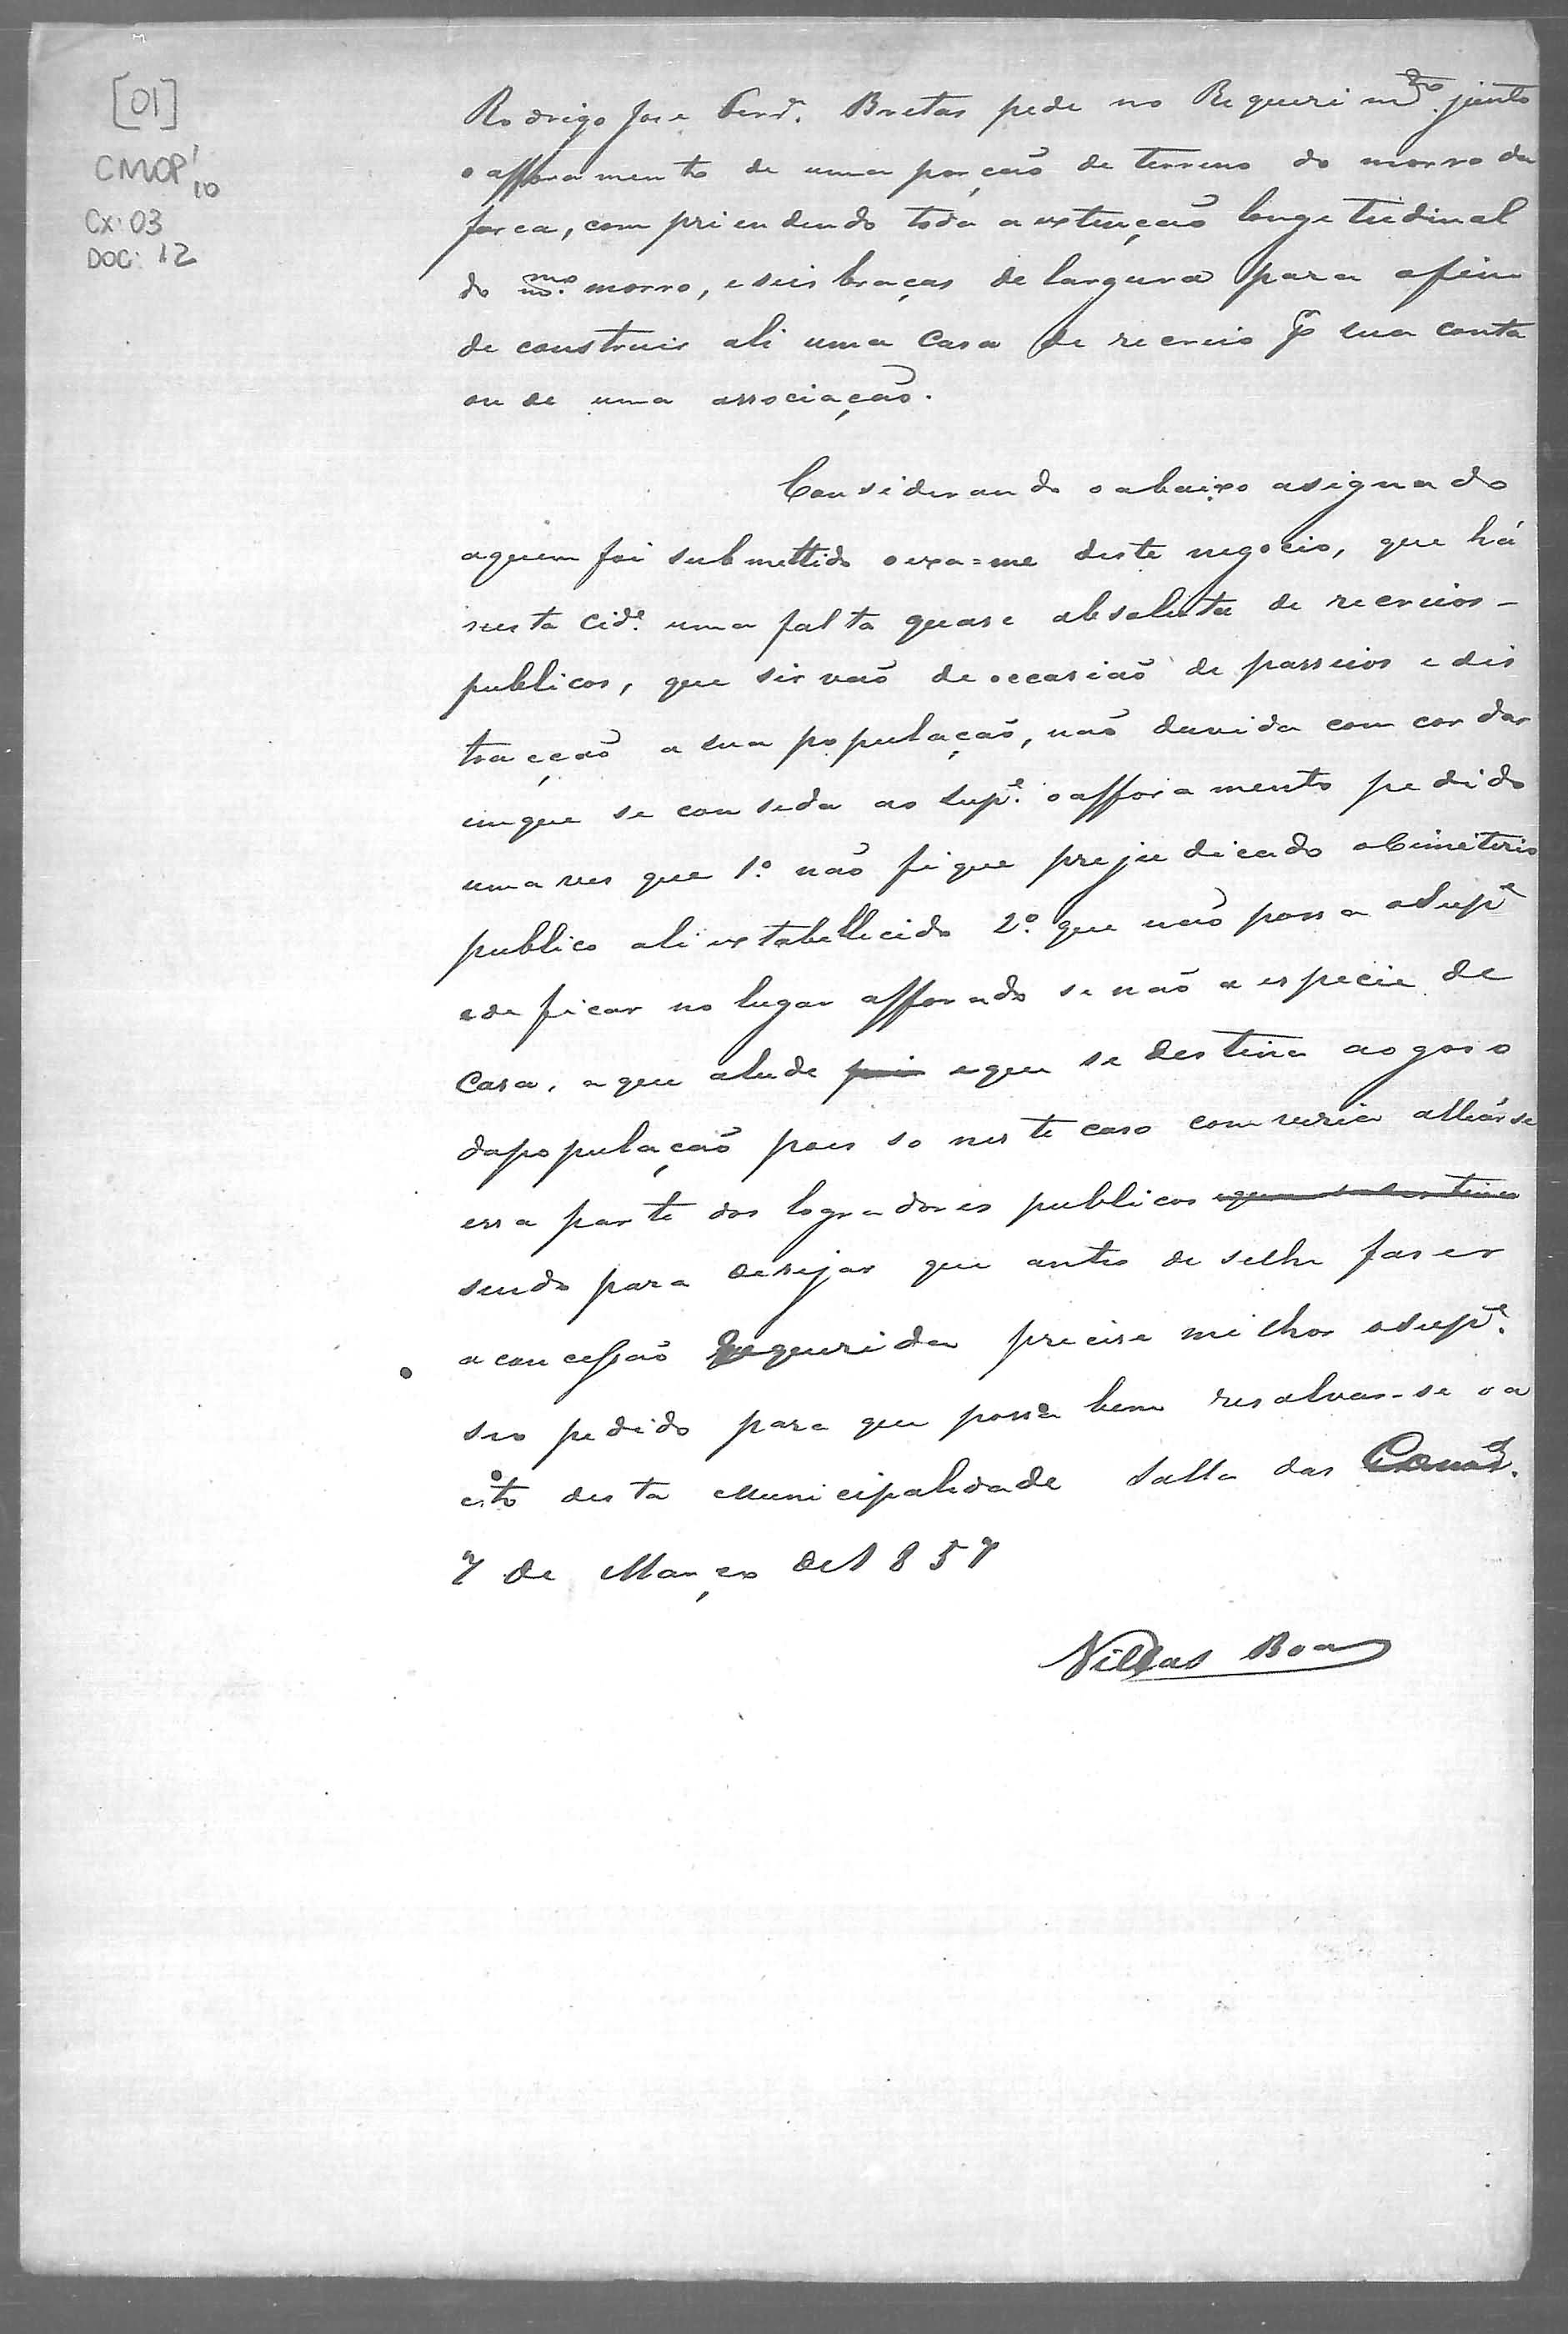 [01]
CMOP'10
CX: 03
DOC: 12
Rodrigo Jose Ferrª. Bretas pede no Requerimto. junto
o afforamento de uma porção de terreno do morro da
forca, compriendendo toda a extenção longetudinal
do mmo. morro, e seis braças de largura para afim
de construir ali uma Casa de recreio p sua conta
ou de uma associação.
Considerando o abaixo asignado
aquem foi submettido o exa=me deste negocio, que há
nesta Cide. uma falta quase absoluta de recreios-
publicos, que sirvaõ de occasiaõ de passeios e dis
tracçaõ a sua populaçaõ, naõ duvida comcordar
emque se conseda ao Supe. o afforamento pedido
uma ves que 1º. naõ fique prejudicado o Cimiterio
publico ali extabellecido 2º. que naõ possa o Supe
edeficar no lugar afforado se naõ a especie de
Casa, a que alude e que se destina ao goso
dapopulaçaõ pois so neste caso comveria alliár se
essa parte dos logradores publicos
sendo para desejar que antes de selhe faser
a concessaõ requerida precise milhor o Supe.
seo pedido para que possa bem resolver-se o a
cito desta Municipalidade Salla das
7 de Março de 1857
Villas Boas